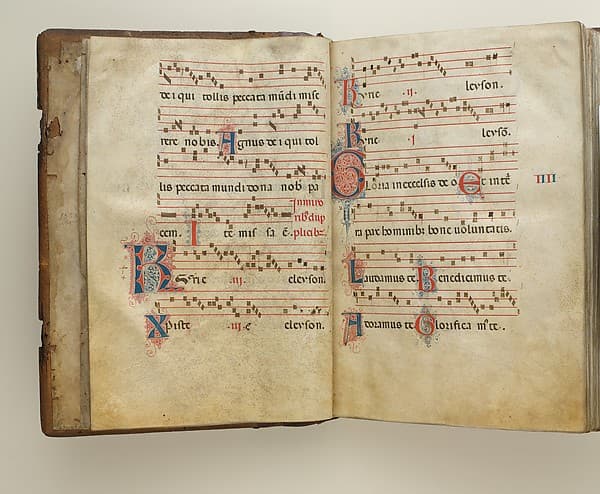 de i qui tollis peccata mūdi mise
rere nobis. Agnus de i qui tol
lis peccata mundi dona nob pa
In mino
ribꝰ dup
cem. Ite mis sa ē. plicibꝰ.
Kyrie .iij. eleyson.
Xpiste .iij. eleyson.
Kyrie .ij. leyson.
Kyrie .i. leysō.
Gloria in excelsis de o Et in tē
IIII
ra pax hominibꝰ bone uoluntatis.
Laudamus te. Benedicimus te.
Adoramus te Glorifica mꝰ te.